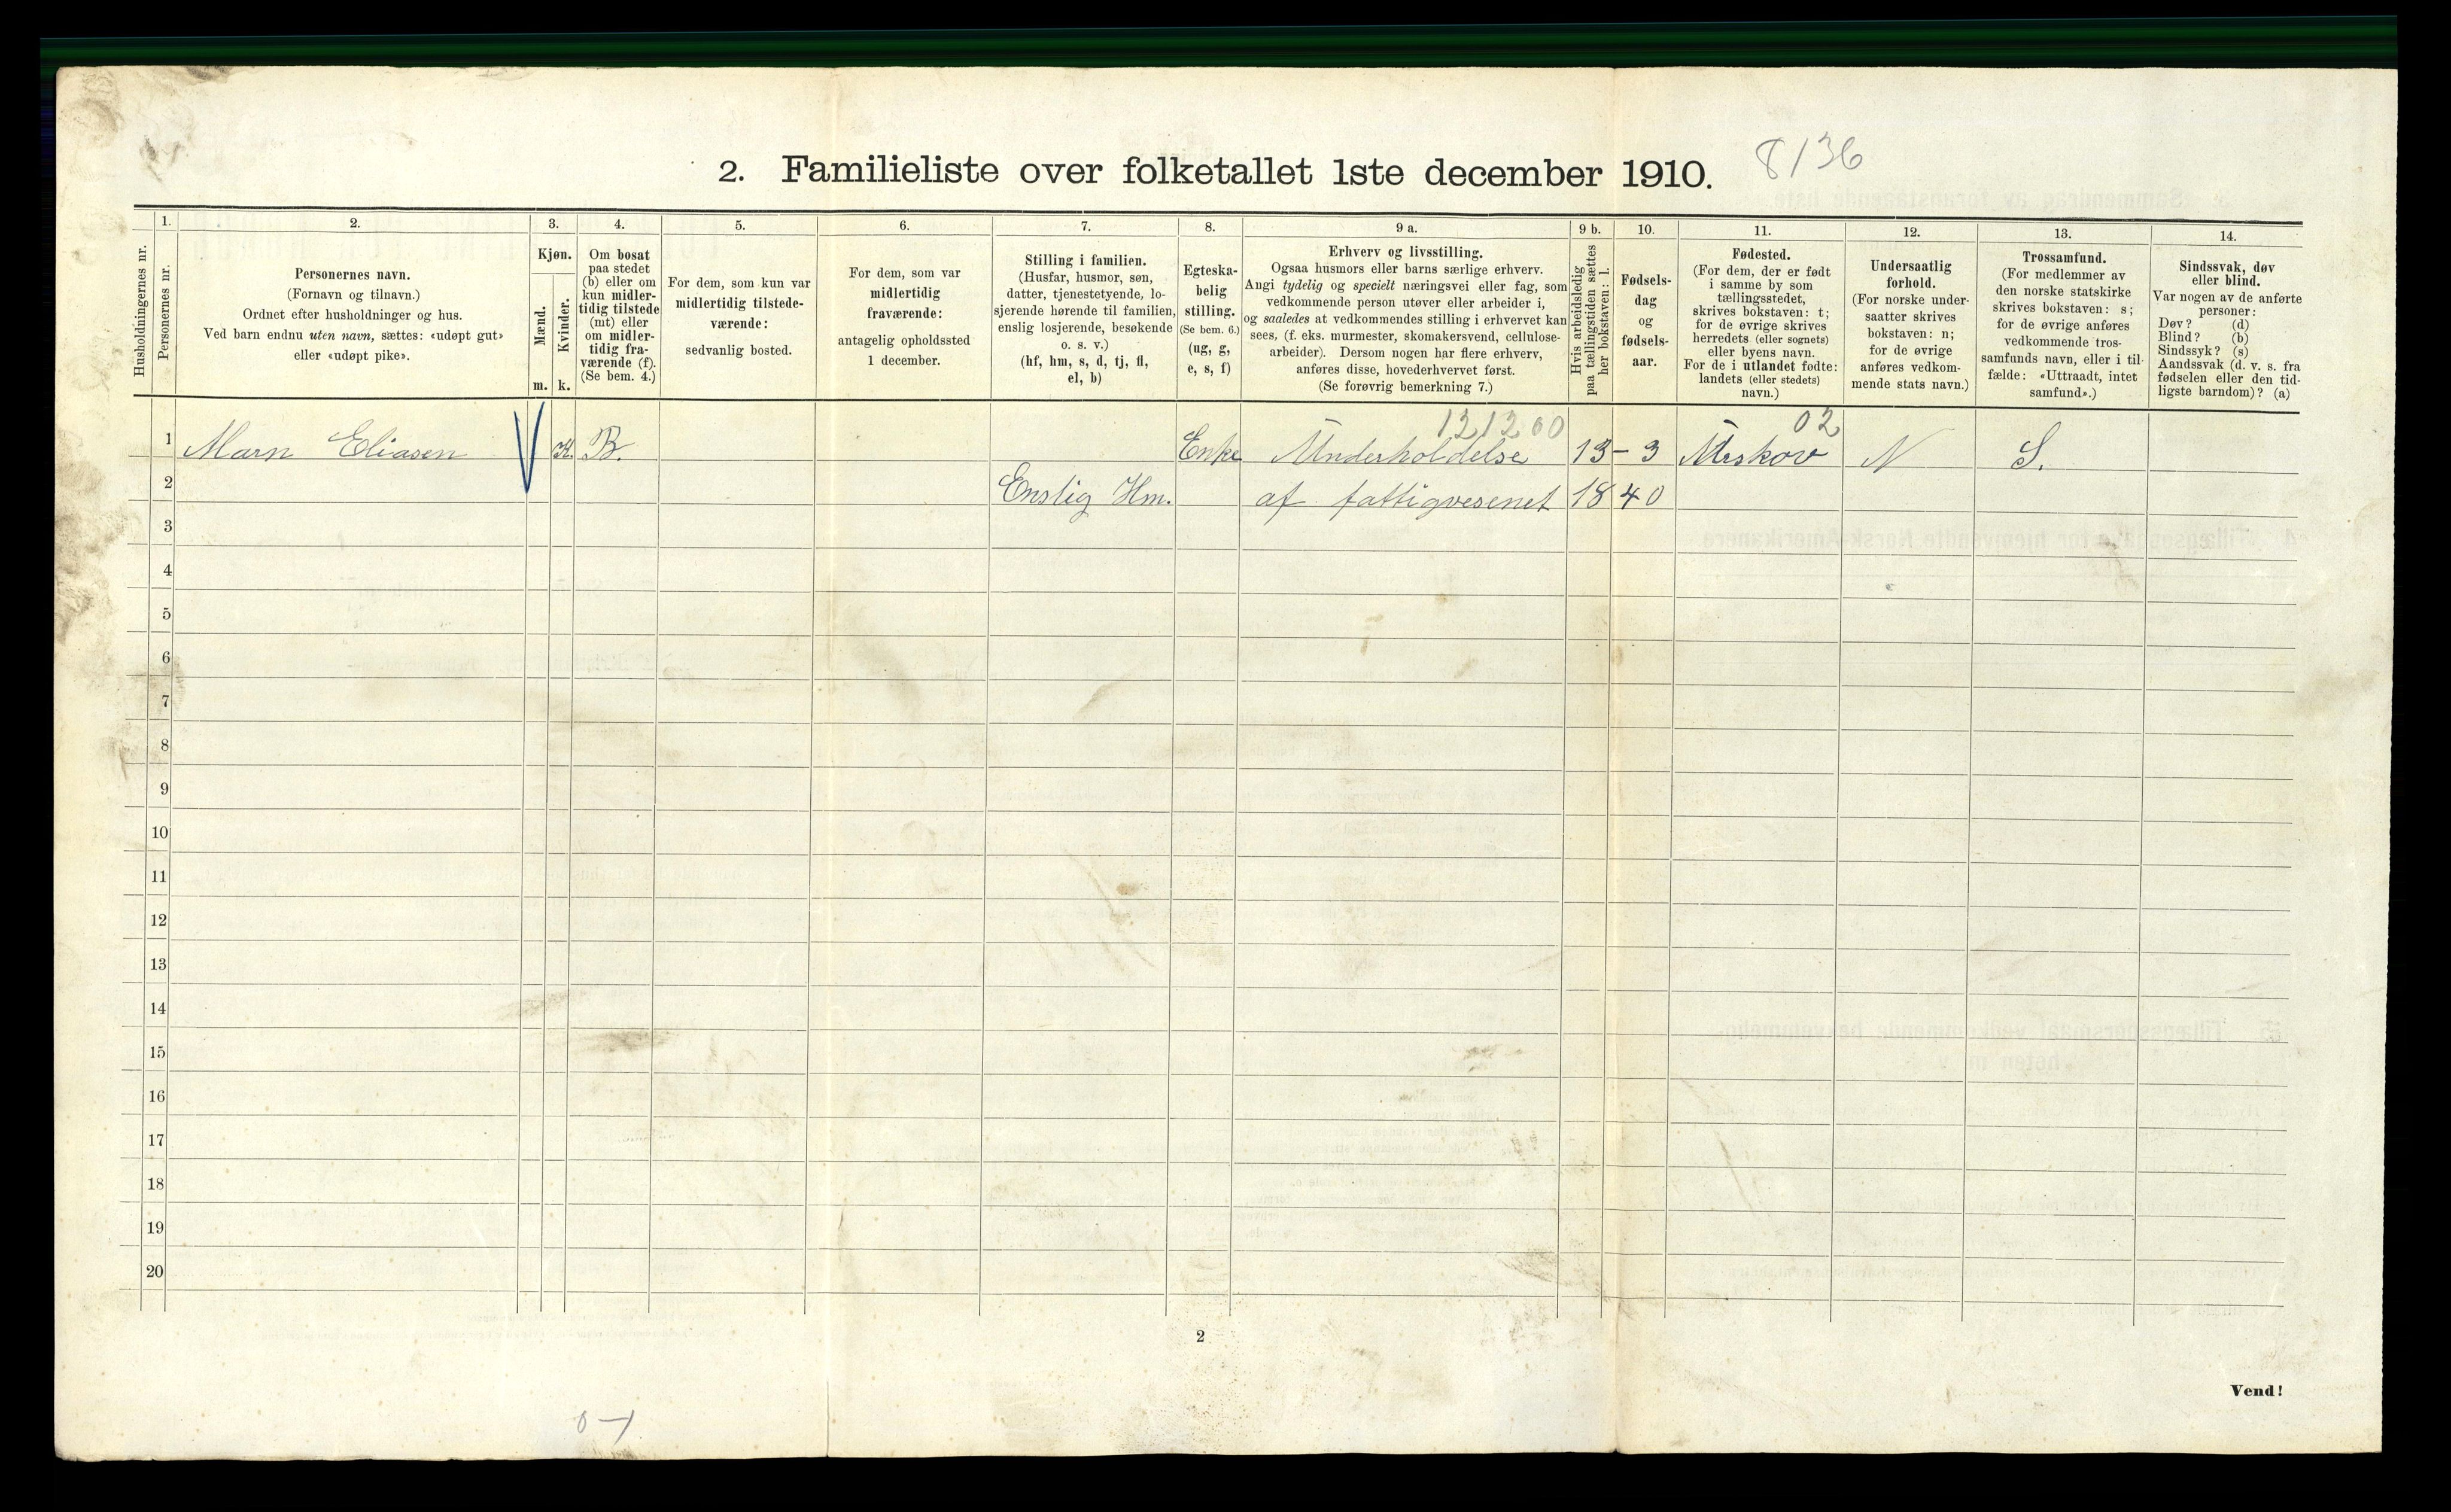 2. Familieliste over folketallet 1ste december 1910.
8136
Husholdningernes nr.
1.
Personernes nr.
2.
Personernes navn.
(Fornavn og tilnavn.)
Ordnet efter husholdninger og hus.
Ved barn endnu uten navn, sættes: «udøpt gut»
eller «udøpt pike».
3.
Kjøn.
Mænd.
m.
Kvinder.
k.
4.
Om bosat
paa stedet
(b) eller om
kun midler-
tidig tilstede
(mt) eller
om midler-
tidig fra-
værende (f).
(Se bem. 4.)
5.
For dem, som kun var
midlertidig tilstede-
værende:
sedvanlig bosted.
6.
For dem, som var
midlertidig
fraværende:
antagelig opholdssted
1 december.
7.
Stilling i familien.
(Husfar, husmor, søn,
datter, tjenestetyende, lo-
sjerende hørende til familien,
enslig losjerende, besøkende
o. s. v.)
(hf, hm, s, d, tj, fl,
el, b)
8.
Egteska-
belig
stilling.
(Se bem. 6.)
(ug, g,
e, s, f)
9 a.
Erhverv og livsstilling.
Ogsaa husmors eller barns særlige erhverv.
Angi tydelig og specielt næringsvei eller fag, som
vedkommende person utøver eller arbeider i,
og saaledes at vedkommendes stilling i erhvervet kan
sees, (f. eks. murmester, skomakersvend, cellulose-
arbeider). Dersom nogen har flere erhverv,
anføres disse, hovederhvervet først.
(Se forøvrig bemerkning 7.)
9 b.
Hvis arbeidsledig
paa tællingstiden sættes
her bokstaven: l.
10.
Fødsels-
dag
og
fødsels-
aar.
11.
Fødested.
(For dem, der er født
i samme by som
tællingsstedet,
skrives bokstaven: t;
for de øvrige skrives
herredets (eller sognets)
eller byens navn.
For de i utlandet fødte:
landets (eller stedets)
navn.)
12.
Undersaatlig
forhold.
(For norske under-
saatter skrives
bokstaven: n;
for de øvrige
anføres vedkom-
mende stats navn.)
13.
Trossamfund.
(For medlemmer av
den norske statskirke
skrives bokstaven: s;
for de øvrige anføres
vedkommende tros-
samfunds navn, eller i til-
fælde: «Uttraadt, intet
samfund».)
14.
Sindssvak, døv
eller blind.
Var nogen av de anførte
personer:
Døv? (d)
Blind? (b)
Sindssyk? (s)
Aandssvak (d. v. s. fra
fødselen eller den tid-
ligste barndom)? (a)
121200 02
1 Marn Eliasen K. B. Enke Underholdelse 13-3 N S.
2 Enslig Hm. af fattigvesenet 1840
3
4
5
6
7
8
9
10
11
12
13
14
15
16
17
18
19
20
2
Vend!
0-1